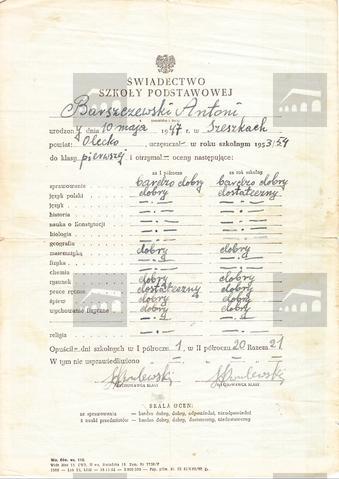 ŚWIADECTWO
SZKOŁY PODSTAWOWEJ
Barszczewski Antoni
urodzony dnia 10 maja 1947 w Szeszkach
powiat: Olecko, uczęszczał w roku szkolnym 1953/54
do klasy pierwszej i otrzymał oceny następujące:
za I półrocze za rok szkolny
sprawowanie bardzo dobry bardzo dobry
język polski dobry dostateczny
język
historia
nauka o Konstytucji
biologia
geografia
matematyka dobry dobry
fizyka
chemia
rysunek dobry dobry
prace ręczne dostateczny dobry
śpiew dobry dobry
wychowanie fizyczne dobry dobry
religia
Opuścił dni szkolnych w I półroczu 1, w II półroczu 20 Razem 21
W tym nie usprawiedliwiono
WYCHOWAWCA KLASY WYCHOWAWCA KLASY
SKALA OCEN:
ze sprawowania — bardzo dobry, dobry, odpowiedni, nieodpowiedni
z nauki przedmiotów — bardzo dobry, dobry, dostateczny, niedostateczny